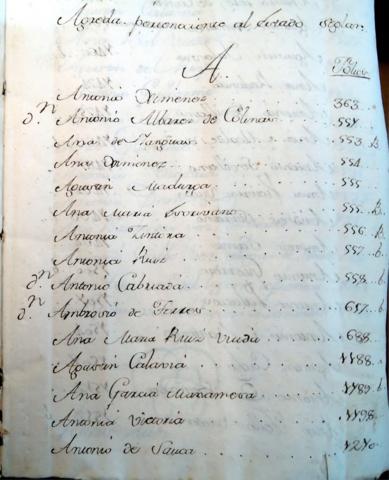 Agreda perteneciente al Estado seglar.
A. Folios
Antonia Ximenez . . . 363.
D.n Antonio Albarez de Colinas . . . 551.
Ana de . . . 553. b.
Ana Ximenez . . . 554.
Agustin . . . 555.
Ana Maria . . . 555. b.
Antonia . . . 556. b.
Antonia Ruiz . . . 557. b
D.n Antonio Cabriada . . . 558. b
D.n Ambrosio de Torres . . . 657. b
Ana Maria Ruiz Viuda . . . 688.
Agustin Calavia . . . 1188.
Ana Garcia . . . 1189. b
Antonia Victoria . . . 1198.
Antonio de Sauca . . . 1210.